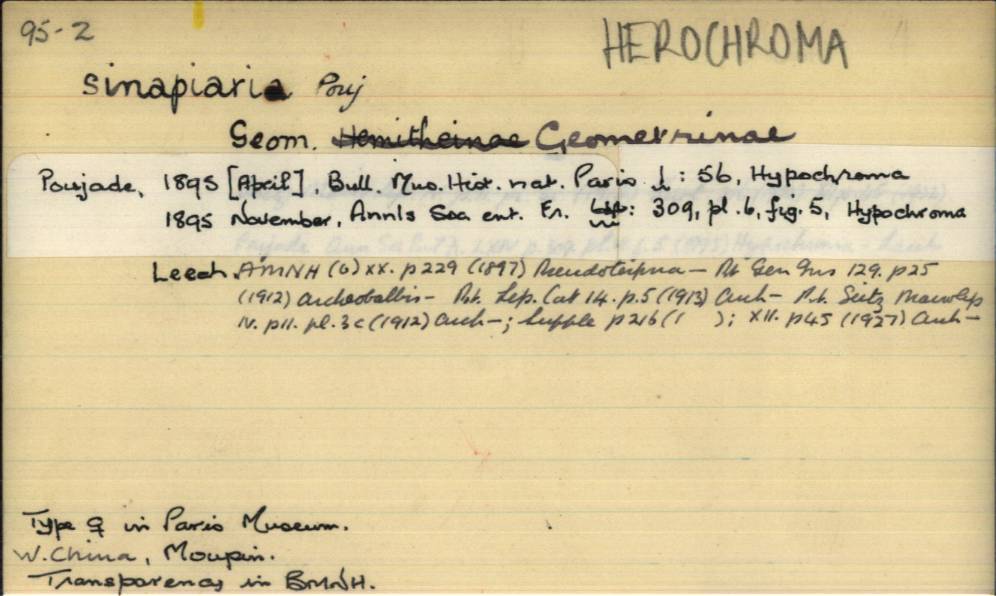 95-2
HEROCHROMA
sinapiaria Pouj
Geom. Hemitheinae Geometrinae
Poujade, 1895 [April], Bull. Mus. Hist. nat. Paris 1: 56, Hypochroma
1895 November, Annls Soc. ent. Fr. 64: 309, pl. 6, fig. 5, Hypochroma
Leech. AMNH (6) xx. p229 (1897) Pseudoterpna — Pt Gen Ins 129. p25
(1912) Archaeobalbis — Pt. Lep. Cat 14. p.5 (1913) Arch — Pt. Seitz Macrolep
IV. p11. pl. 3c (1912) Arch—; Supple p216 (1 ); XII. p45 (1927) Arch—
Type ♀ in Paris Museum.
W. China, Moupin.
Transparency in BMNH.